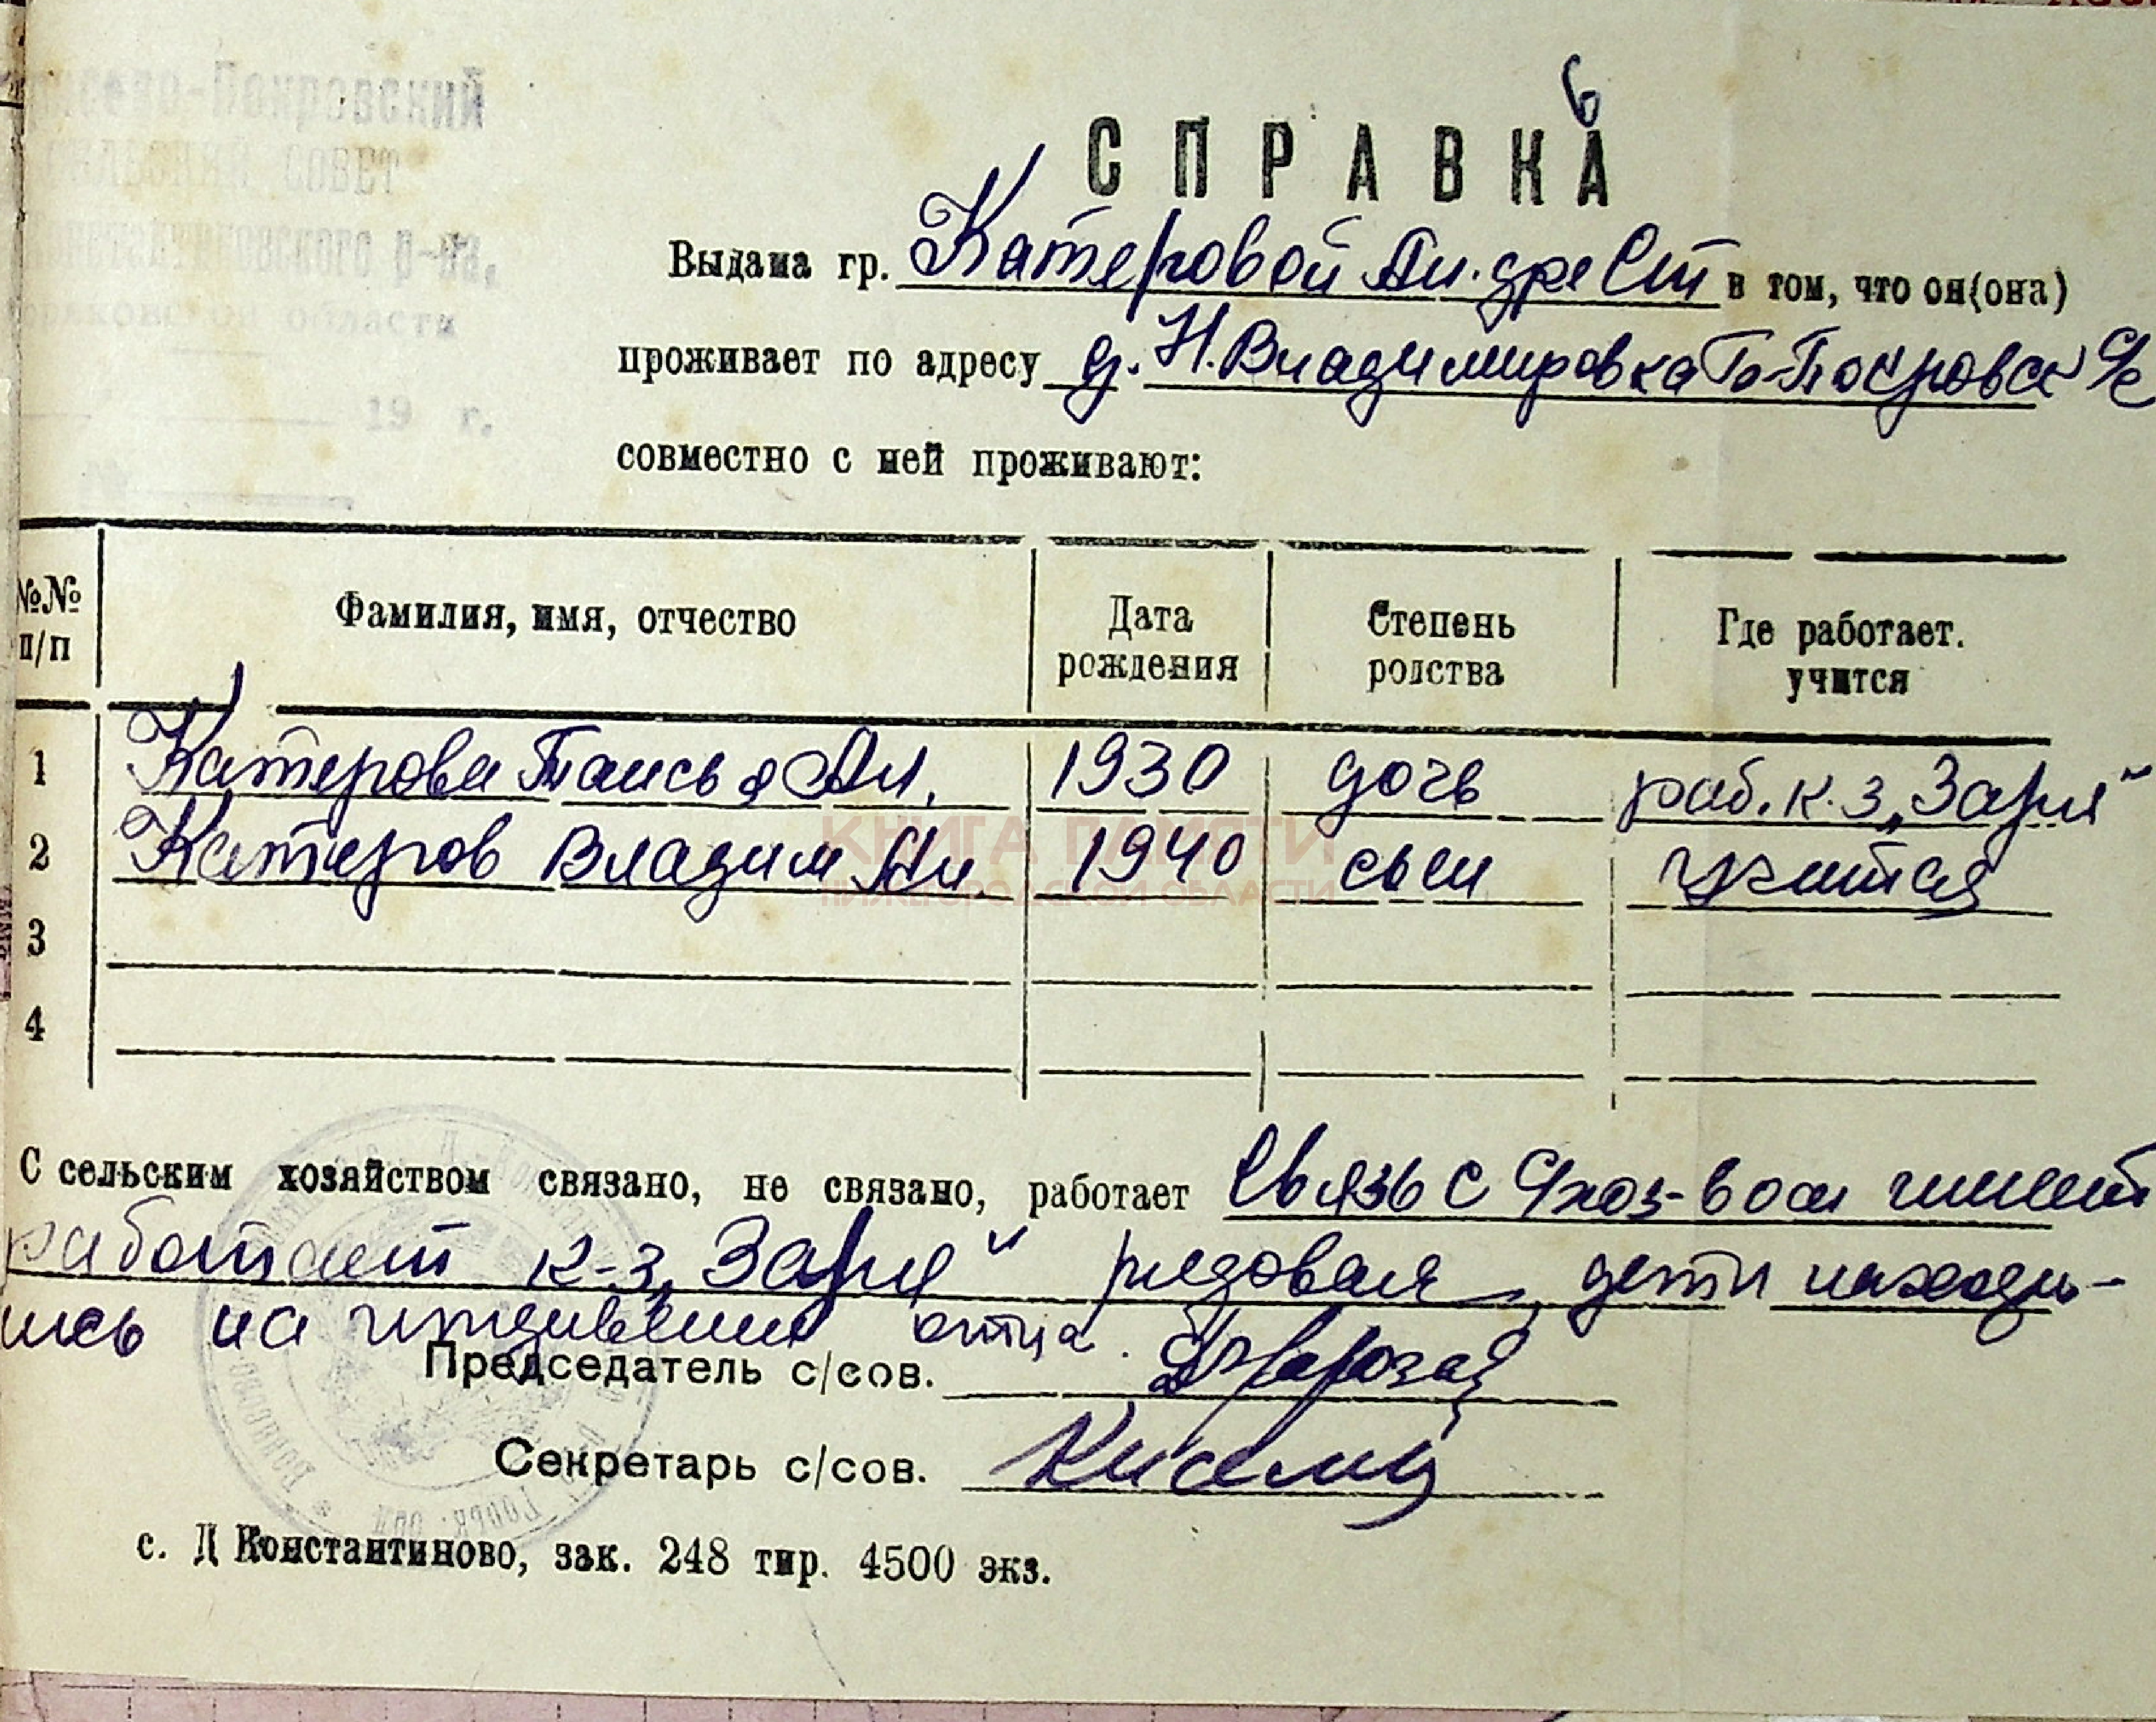 -Покровский
СЕЛЬСКИЙ СОВЕТ
Константиновского р-на,
области
19 г.
6
СПРАВКА
Выдана гр. Катеровой Ал-дре Ст в том, что он(она)
проживает по адресу д. Н.Владимировка Б-Покровск с/с
совместно с ней проживают:
№№ п/п
Фамилия, имя, отчество
Дата рождения
Степень родства
Где работает. учится
1 Катерова Таисья Ал. 1930 дочь раб. к-з „Заря“
2 Катеров Владим Ал 1940 сын учится
3
4
КНИГА ПАМЯТИ
НИЖЕГОРОДСКОЙ ОБЛАСТИ
С сельским хозяйством связано, не связано, работает Связь с с/хоз-вом имеет
работает к-з „Заря“ рядовая, дети находи-
лись на иждивении отца.
Председатель с/сов.
Секретарь с/сов.
с. Д Константиново, зак. 248 тир. 4500 экз.